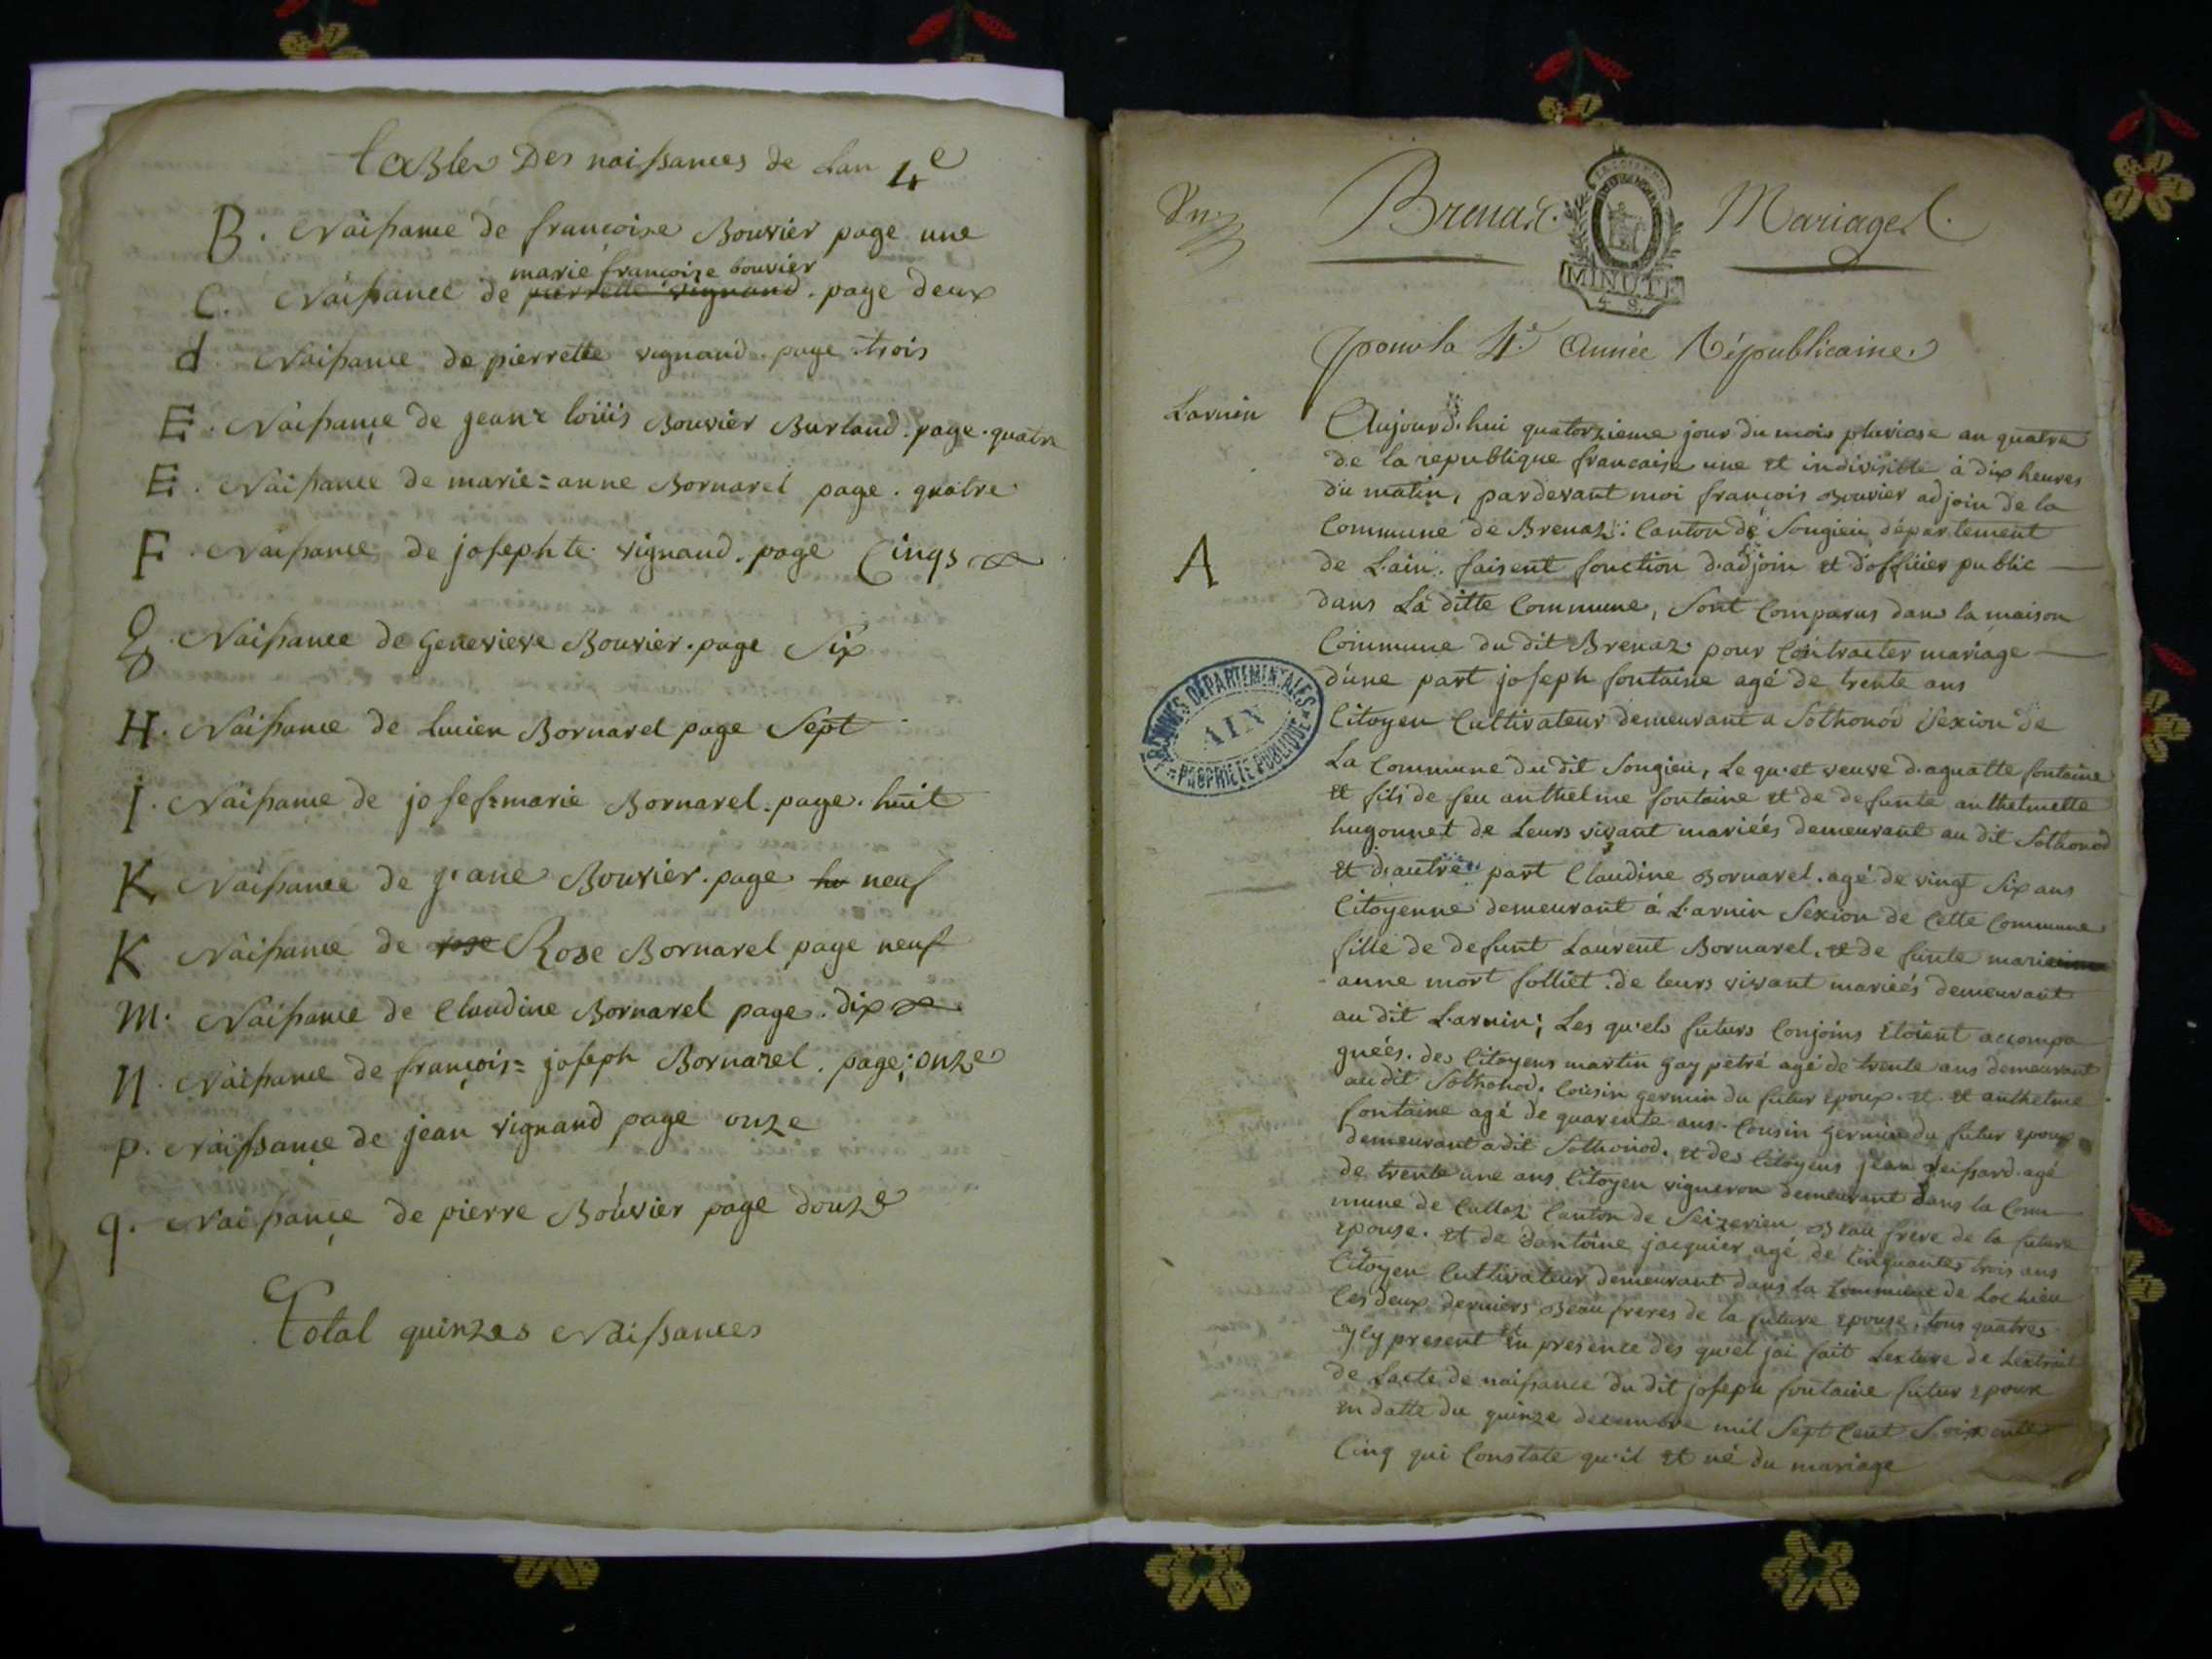 tables Des naissances de Lan 4e
B. Naissance de françoise Bouvier page une
marie françoise bouvier
C. Naissance de pierrette vignand . page deux
d Naissance de pierrette vignand . page . trois
E . Naissance de jeanr loüis Bouvier Burland . page . quatre
E . Naissance de marie=anne Bornarel page . quatre
F . Naissance de josephte vignand . page Cinqs
G . Naissance de Genevieve Bouvier . page Six
H . Naissance de Lucien Bornarel page Sept
I . Naissance de josef=marie Bornarel . page . huit
K Naissance de jeane Bouvier . page hu neuf
K Naissance de rose Rose Bornarel page neuf
M . Naissance de Claudine Bornarel page . dix
N . Naissance de françois= joseph Bornarel . page ; onze
p . Naissance de jean vignand page onze
q . Naissance de pierre Bouvier page douze
Total quinzes Naissances
Brenaz . Mariages .
MINUTE
4 S.
pour la 4e Année Républicaine
Larnin
Aujourd'hui quatorzieme jour du mois pluviose an quatre
de la republique francaise une et indivisible à dix heures
du matin, pardevant moi françois Bouvier adjoin de la
Commune de Brenaz : Canton de Songieu département
A
de L'ain . faisent fonction d'adjoin et d'officier public
dans La ditte Commune, Sont Comparus dans la maison
Commune du dit Brenaz pour Contracter mariage
d'une part joseph fontaine agé de trente ans
ARCHIVES DÉPARTEMENTALES
AIN
PROPRIÉTÉ PUBLIQUE
Citoyen Cultivateur demeurant a Sothonod Sexion de
La Commune du dit Songieu, Le qu'et veuve d'aguatte fontaine
et fils de feu anthelme fontaine et de defunte anthelmette
hugonnet de Leurs vivant mariées demeurant au dit Sothonod
et d'autre part Claudine Bornarel . agé de vingt Six ans
Citoyenne demeurant á Larnin Sexion de Cette Commune
fille de defunt Laurent Bornarel . et de funte marie
anne mort folliet . de leurs vivant mariées demeurant
au dit Larnin ; Les qu'els futurs Conjoins Etoient accompa
gnées . des Citoyens martin Gay petré agé de trente ans demeurant
au dit Sothonod . Cousin germin du futur Epoux . et . et anthelme
fontaine agé de quarente ans . Cousin germin du futur Epoux
demeurant adit Sothonod . et des Citoyens jean agé
de trente une ans Citoyen vigneron demeurant dans la Com
mune de Culloz Canton de Seizerieu Beau frere de la future
Epouse . et de dantoine jacquier agé de Cinquantes trois ans
Citoyen Cultivateur demeurant dans la Commune de Lochieu
Ces deux derniers Beau freres de la future Epouse, tous quatres
present et en presence des qu'el jai fait Lexture de Lextrait
de Lacte de naissance du dit joseph fontaine futur Epoux
en datte du quinze decembre mil Sept Cent Soixente
Cinq qui Constate qu'il et né du mariage